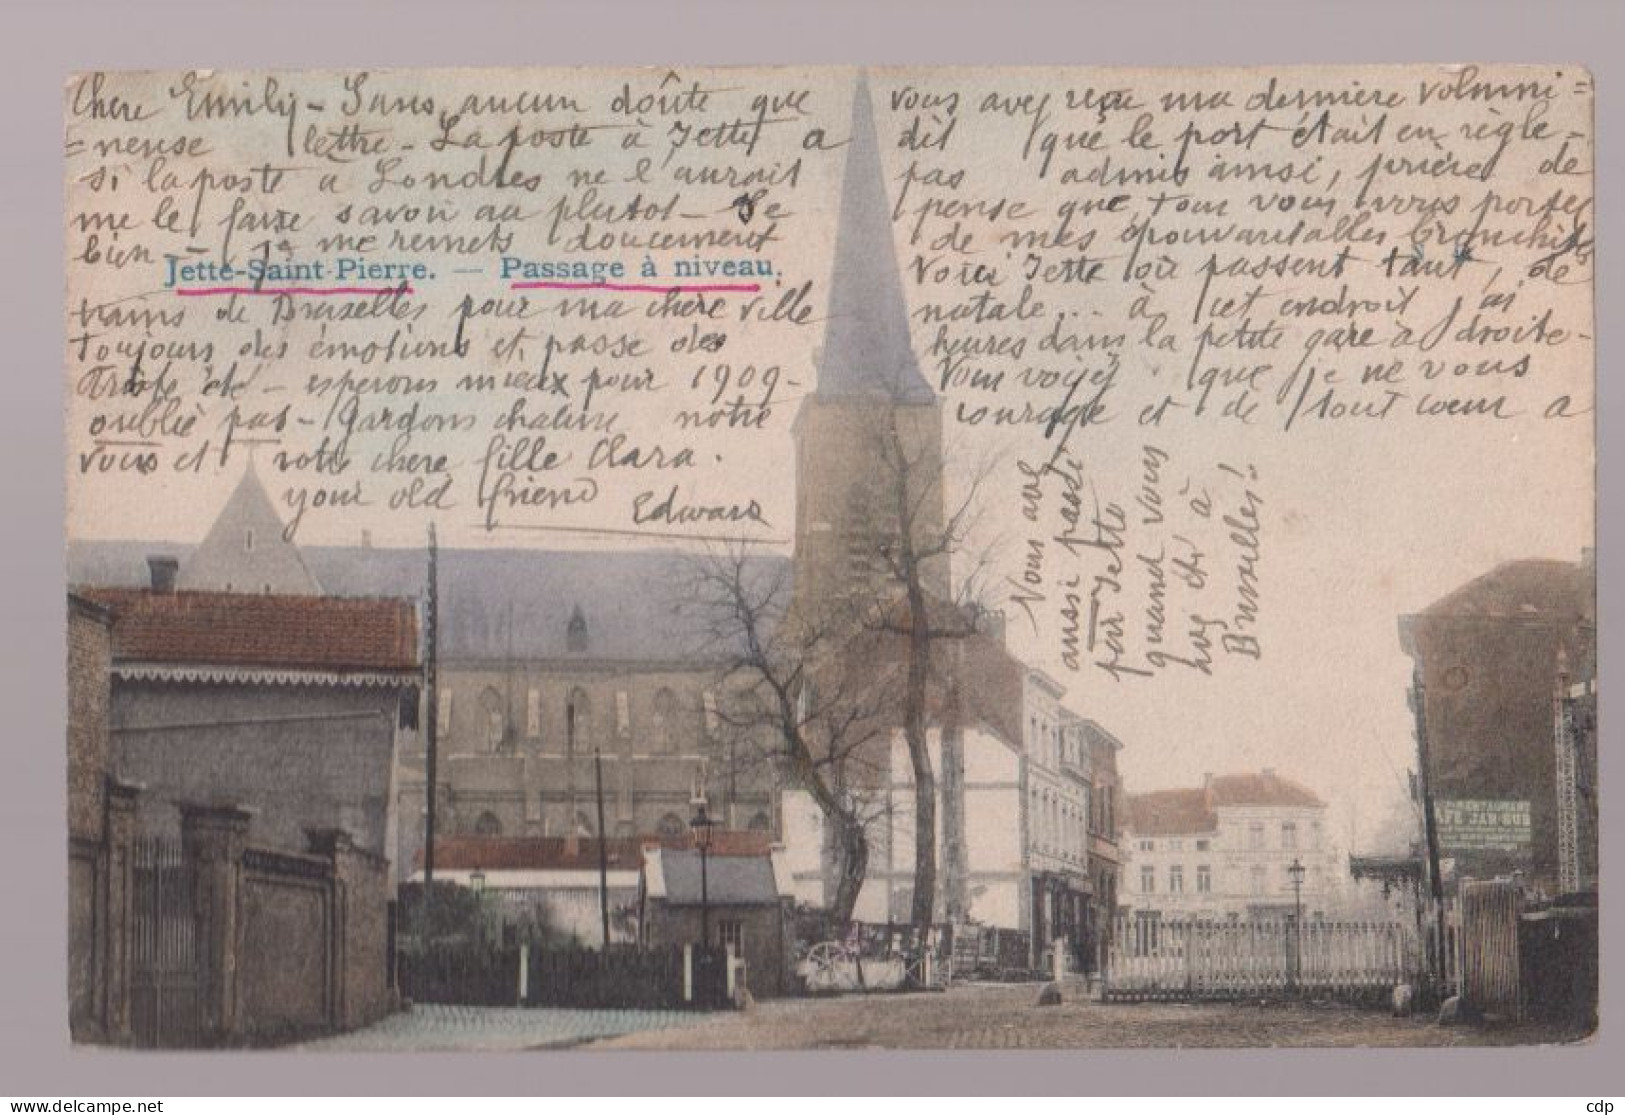 Chere Emily – Sans aucun doûte que vous avez reçu ma dernière volumi=
=neuse lettre – La poste à Jette a dit que le port était en règle –
si la poste a Londres ne l'aurait pas admis ainsi, prière de
me le faire savoir au plutot – Je pense que tous vous vous portez
bien – me remets doucement de mes épouvantables bronchites
Jette-Saint-Pierre. — Passage à niveau.
Voici Jette où passent tant, de
trains de Bruxelles pour ma chere ville natale... à cet endroit j'ai
toujours des émotions et passe des heures dans la petite gare à droite –
été – esperons mieux pour 1909 – Vous voyez que je ne vous
oublié pas – Gardons chaline notre courage et de tout cœur a
vous et votre chere fille Clara.
your old friend Edward
Vous avez
aussi passé
par Jette
quand vous
été à
Bruxelles!
cdp